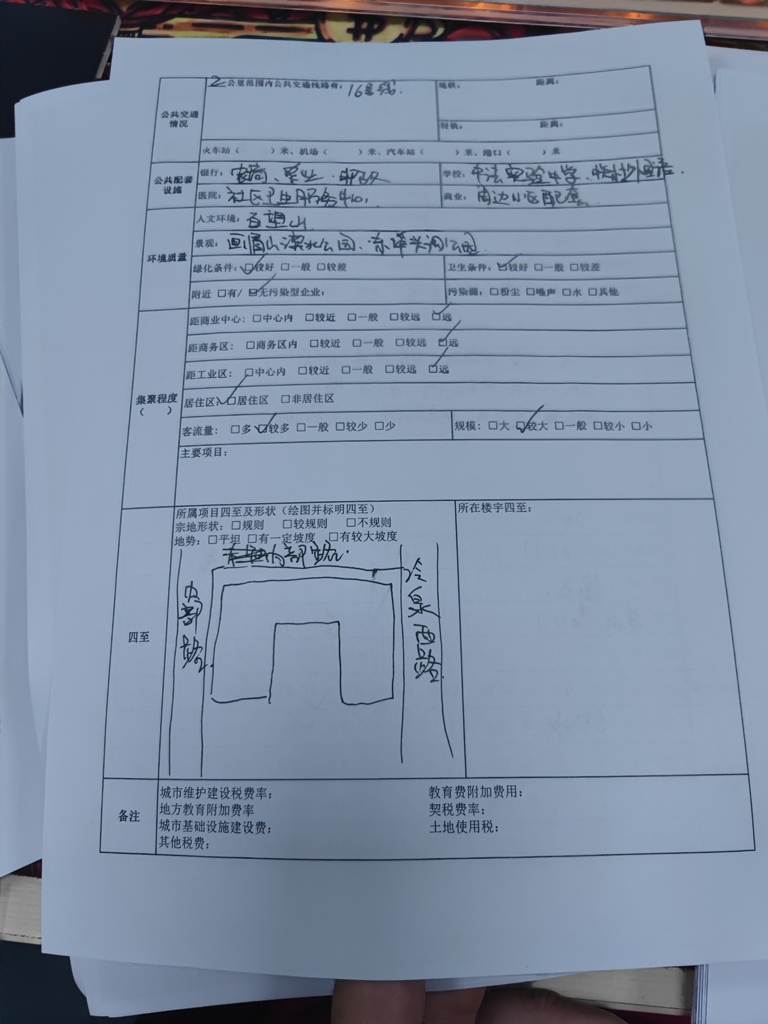 2公里范围内公共交通线路有：16号线.
地铁： 距离：
公共交通情况
轻轨： 距离：
火车站（ ）米、机场（ ）米、汽车站（ ）米、港口（ ）米
公共配套设施
银行：农商、 学校：中法实验中学、
医院：社区卫生服务中心， 商业：周边小区配套
环境质量
人文环境：百望山
景观：画眉山滨水公园、东埠头沟公园
绿化条件：☑较好 □一般 □较差 卫生条件：☑较好 □一般 □较差
附近 □有/☑无污染型企业： 污染源：□粉尘 □噪声 □水 □其他
集聚程度（ ）
距商业中心：□中心内 □较近 □一般 □较远 ☑远
距商务区：□商务区内 □较近 □一般 □较远 ☑远
距工业区：□中心内 □较近 □一般 □较远 ☑远
居住区：☑居住区 □非居住区
客流量：□多 ☑较多 □一般 □较少 □少 规模：□大 ☑较大 □一般 □较小 □小
主要项目：
四至
所属项目四至及形状（绘图并标明四至） 所在楼宇四至：
宗地形状：□规则 □较规则 □不规则
地势：□平坦 □有一定坡度 □有较大坡度
内部路.
内部路.
冷泉西路
备注
城市维护建设税费率： 教育费附加费用：
地方教育附加费率 契税费率；
城市基础设施建设费： 土地使用税：
其他税费；